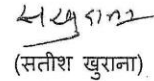 (सतीश खुराना)